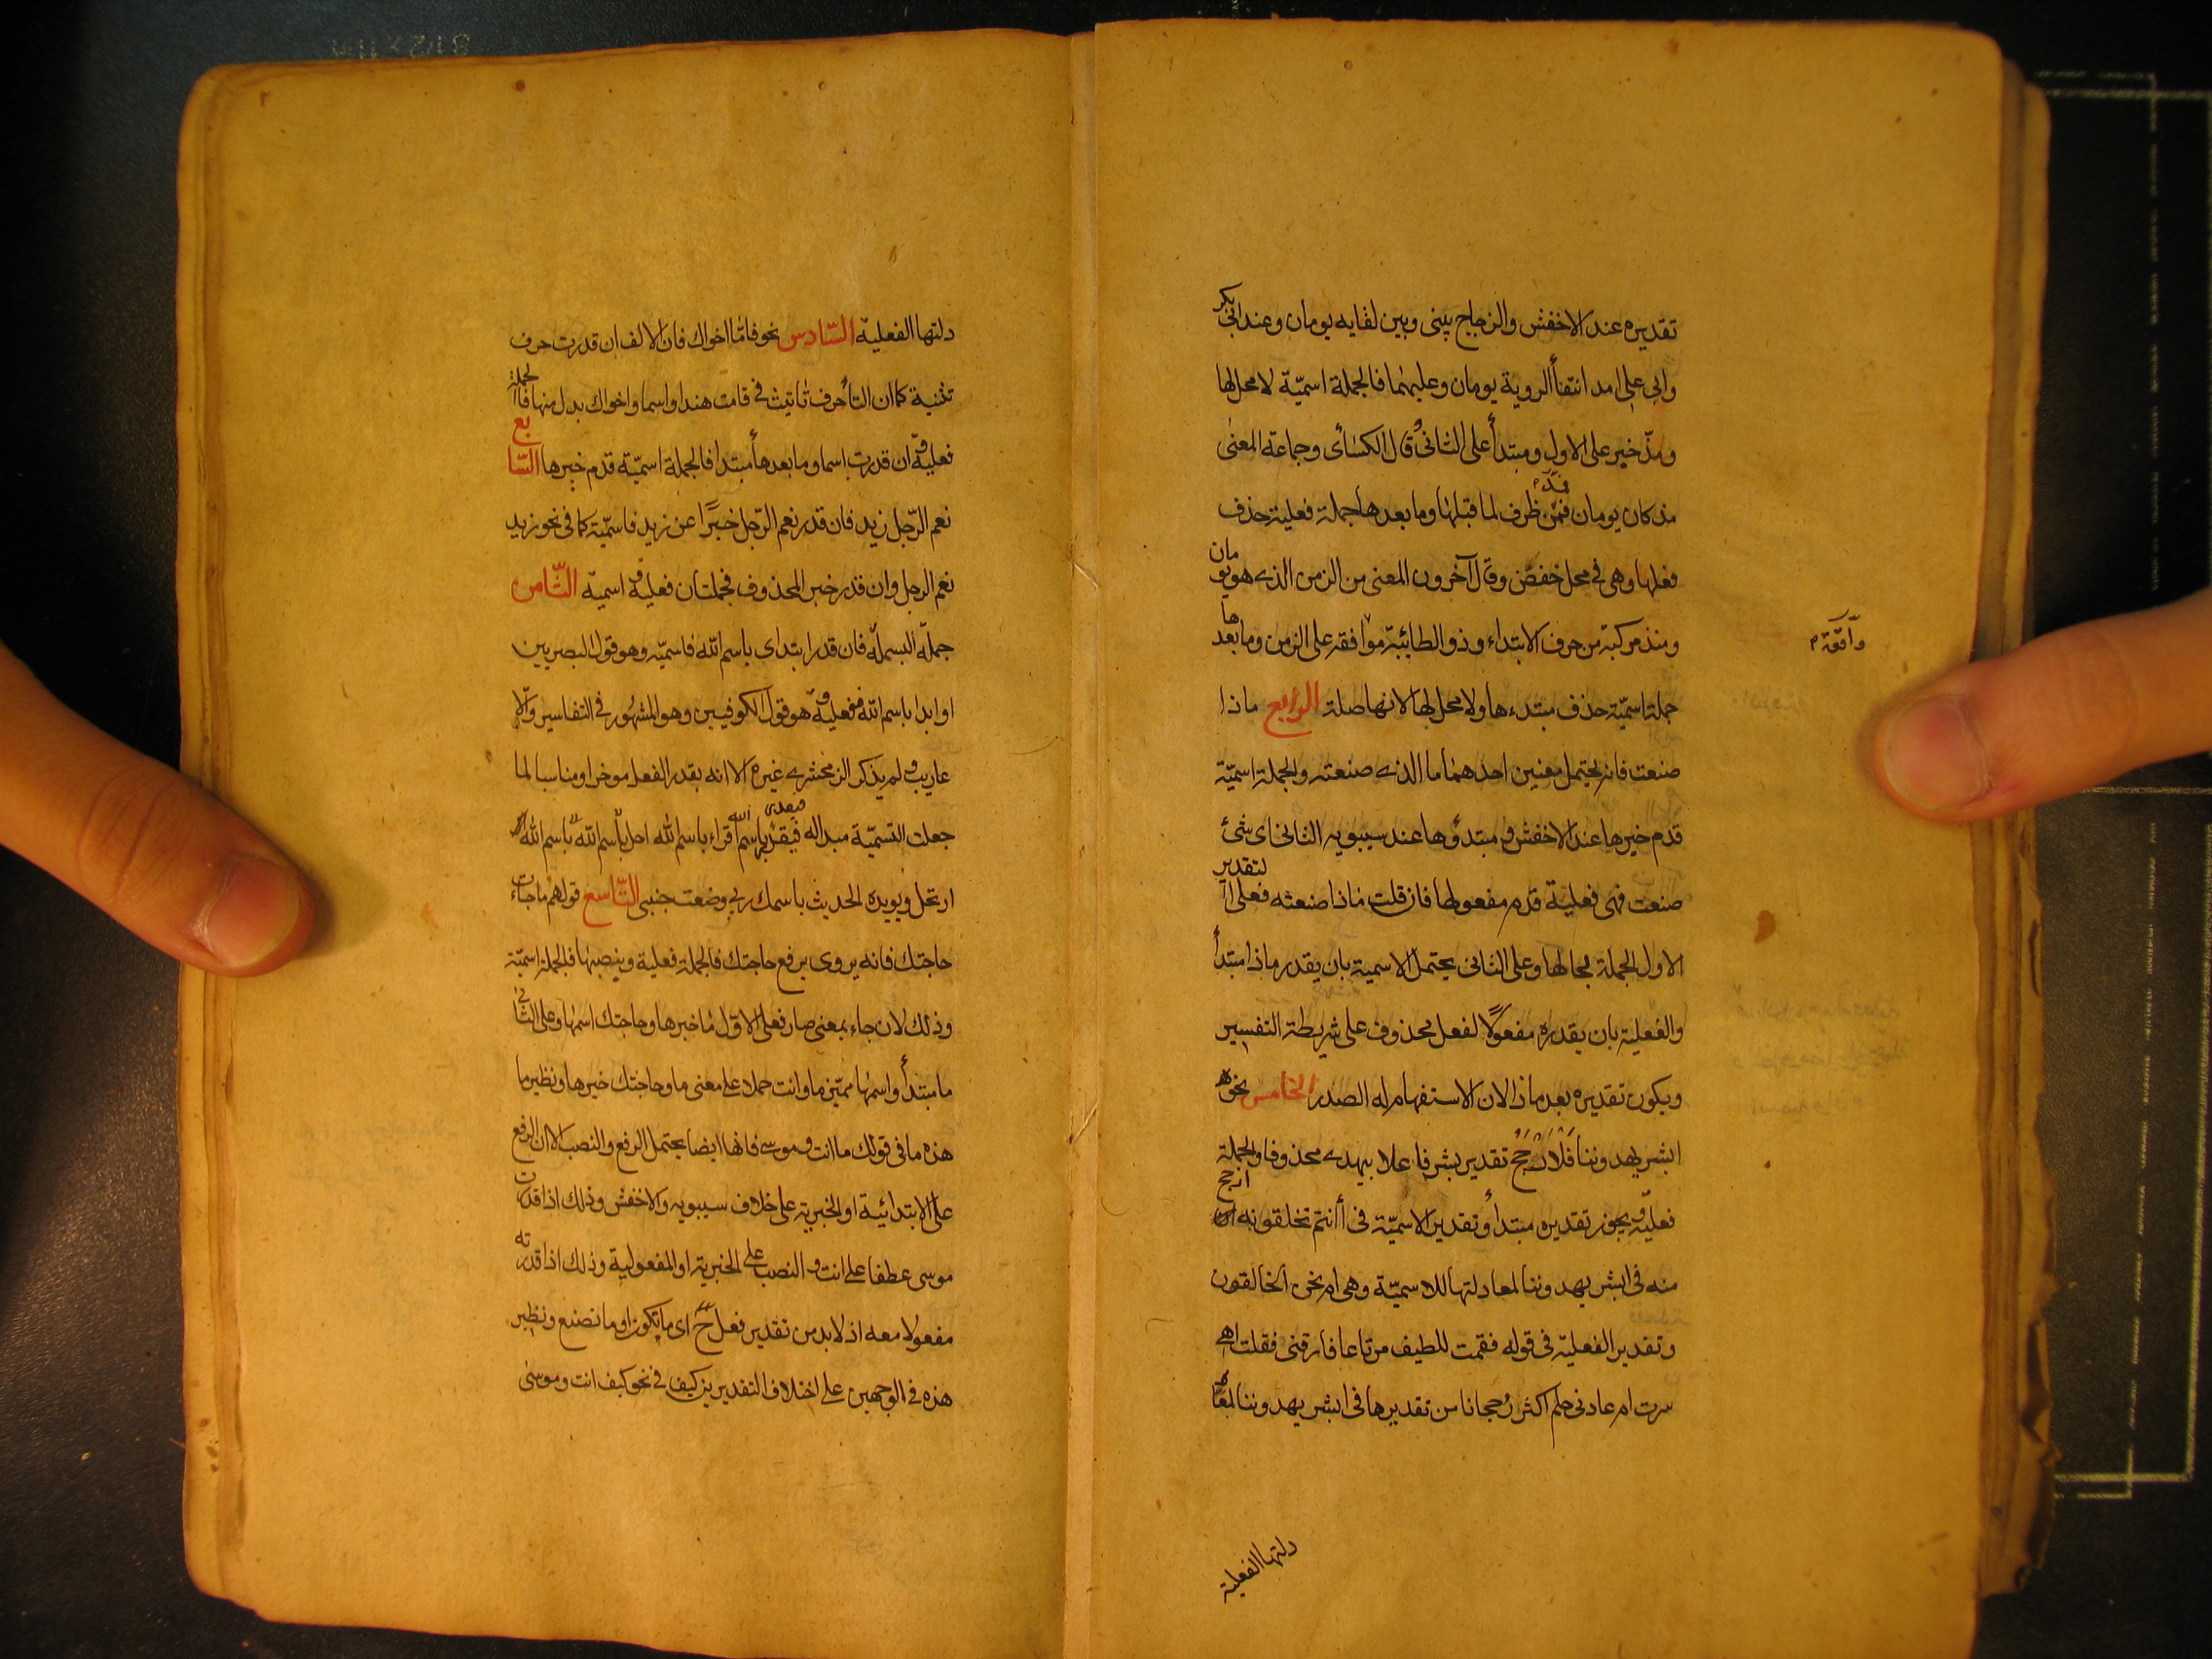 تقديره عند الاخفش والزجاج بيني وبين لقايه يومان وعند ابي بكر
وابي على امد انتفأ الروية يومان وعليهما فالجملة اسميّة لا محل لها
ومذ خبر على الاول ومبتدأ على الثانى وقال الكسائ وجماعة المعنى
مذ كان يومان فمذ ظرف لما قبلها وما بعدها جملة فعلية حذف
فعلها وهى فى محل خفض وقال آخرون المعنى من الزمن الذى هو يومان
ومنذ مركبة من حرف الابتداء وذو الطائيّة موافقه على الزمن وما بعدها
واقعة م
جملة اسميّة حذف مبتدءها ولا محل لها لانها صلة الرابع ماذا
صنعت فانه يحتمل معنيين احدهما ما الذى صنعته والجملة اسميّة
قدم خبرها عند الاخفش و مبتدؤها عند سيبويه الثانى اى شئ
صنعت فهى فعلية قدم مفعولها فان قلت ماذا صنعته فعلى التقدير
الاول الجملة بحالها وعلى الثانى يحتمل الاسمية بان يقدر ماذا مبتدأ
والفعلية بان يقدره مفعولًا لفعل محذوف على شريطة التفسير
ويكون تقديره بعد ماذا لان الاستفهام له الصدر الخامس نحو
ابشر يهدوننا فالارجح تقدير بشر فاعلا بيهدى محذوفا والجملة
فعليّة ويجوز تقديره مبتدأ وتقدير الاسميّة فى أأنتم تخلقونه ارجح
منه فى ابشر يهدوننا لمعادلتها للاسميّة وهى ام نحن الخالقون
وتقدير الفعليّة فى قوله فقمت للطيف مرتاعا فارقنى فقلت اهى
سرت ام عادنى حلم اكثر رُجحانا من تقديرها فى ابشر يهدوننا لمعا
دلتها الفعلية
دلتها الفعليّة السّادس نحو قامٰا اخواك فان الالف ان قدرت حرف
تثنية كما ان التأ حرف تأنيث فى قامت هند او اسما واخواك بدل منها فالجملة
فعلية وان قدرت اسما وما بعدها مبتدأ فالجملة اسميّة قدم خبرها السّابع
نعم الرّجل زيد فان قدر نعم الرّجل خبرًا عن زيد فاسميّة كما فى نحو زيد
نعم الرجل وان قدر خبر المحذوف فجملتان فعليّة و اسميّة الثّامن
جملة البسملة فان قدر ابتداى باسم الله فاسميّة وهو قول البصريين
او ابدا باسم الله ففعليّة و هو قول الكوفيين وهو المشهور فى التفاسير والا
عاريب و لم يذكر الزمخشرى غيره الا انه يقدر الفعل موخرا ومناسبا لما
جعلت التسميّة مبداله فيقدر باسم الله اقراء باسم الله احل باسم الله باسم الله
ارتحل ويويده الحديث باسمك ربى وضعت جنبى التّاسع قولهم ما جاءت
حاجتك فانه يروى برفع حاجتك فالجملة فعلية وبنصبها فالجملة اسميّة
وذلك لان جاء بمعنى صار فعلى الاوّل ما خبرها وحاجتك اسمها وعلى الثانى
ما مبتدأ واسمها ضمير ما وانت حملا على معنى ما وحاجتك خبرها ونظير ما
هذه ما فى قولك ما انت و موسى فانها ايضا يحتمل الرفع والنصب الا ان الرفع
على الابتدائيّة او الخبرية على خلاف سيبويه والاخفش وذلك اذا قدرت
موسى عطفا على انت و النصب على الخبرية او المفعولية وذلك اذا قدرته
مفعولا معه اذ لا بد من تقدير فعل ح اى ما تكون او ما تصنع ونظير
هذه فى الوجهين على اختلاف التقديرين كيف فى نحو كيف انت وموسى